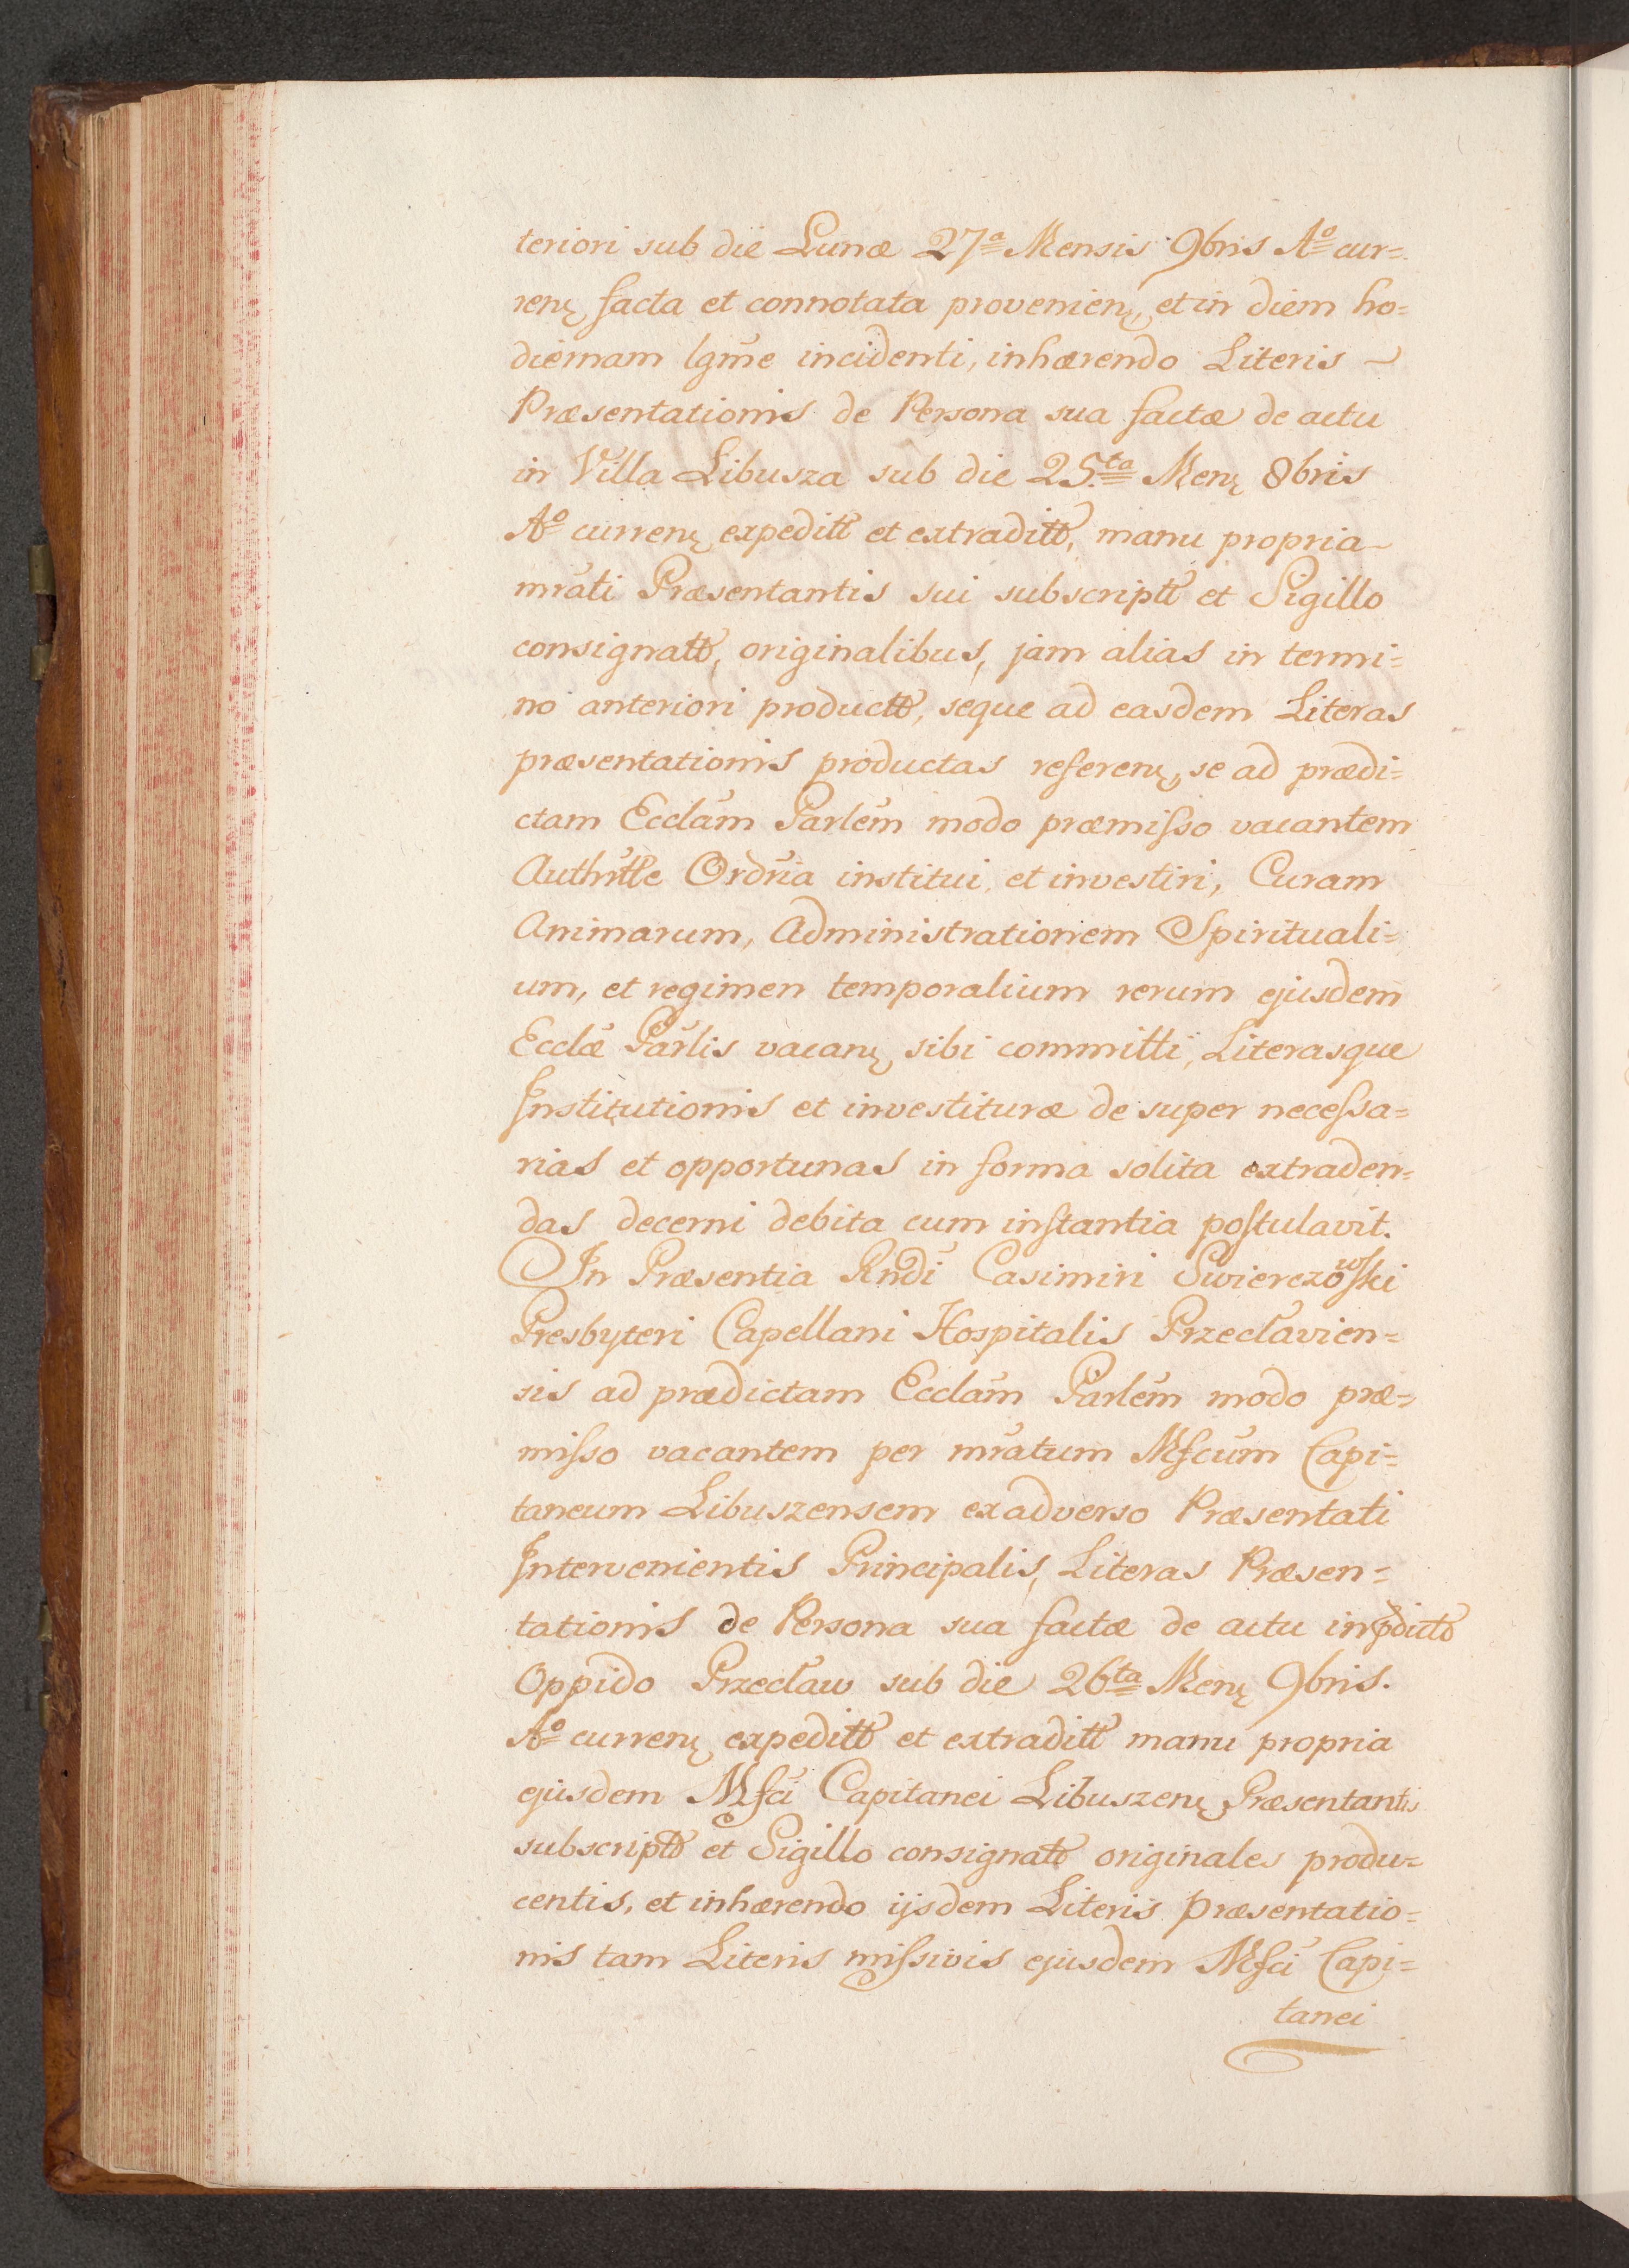 teriori sub die Lunæ 27ª Mensis 9bris Aº cur=
renę facta et connotata provenienę, et in diem ho=
diernam lgm̃e incidenti, inhærendo Literis ~
Præsentationis de Persona sua factæ de actu
in Villa Libusza sub die 25.ta Menę 8bris
Aº currenę expeditt et extraditt, manu propria
mr̃ati Præsentantis sui subscriptt et Sigillo
consignatt, originalibus, jam alias in termi=
no anteriori productt, seque ad easdem Literas
præsentationis productas referenę, se ad prædi=
ctam Ecclãm Parlẽm modo præmisso vacantem
Authr̃tte Ordr̃ia institui et investiri, Curam
Animarum, Administrationem Spirituali=
um, et regimen temporalium rerum ejusdem
Ecclæ̃ Par̃lis vacanę sibi committi, Literasque
Institutionis et investituræ de super necessa=
rias et opportunas in forma solita extraden=
das decerni debita cum instantia postulavit.
In Præsentia Rñdi Casimiri Swierczowski
Presbyteri Capellani Hospitalis Przecłavien=
sis ad prædictam Ecclãm Parlẽm modo præ=
misso vacantem per mr̃atum Mfcũm Capi=
taneum Libuszensem ex adverso Præsentati
Intervenientis Principalis, Literas Præsen=
tationis de Persona sua factæ de actu in p̃dicto
Oppido Przecław sub die 26ta Menę 9bris.
Aº currenę expeditt et extraditt manu propria
ejusdem Mfcĩ Capitanei Libuszenę Præsentantis
subscriptt et Sigillo consignatt originales produ=
centis, et inhærendo ijsdem Literis præsentatio=
nis tam Literis missivis ejusdem Mfcĩ Capi=
tanei